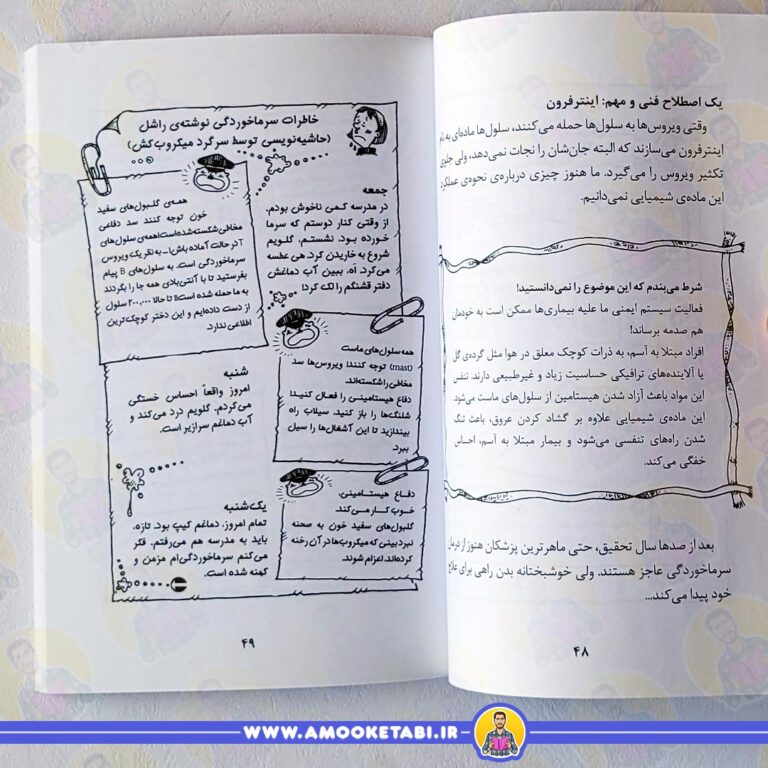 یک اصطلاح فنی و مهم: اینترفرون
وقتی ویروس‌ها به سلول‌ها حمله می‌کنند، سلول‌ها ماده‌ای به نام
اینترفرون می‌سازند که البته جان‌شان را نجات نمی‌دهد، ولی جلوی
تکثیر ویروس را می‌گیرد. ما هنوز چیزی درباره‌ی نحوه‌ی عملکرد
این ماده‌ی شیمیایی نمی‌دانیم.
شرط می‌بندم که این موضوع را نمی‌دانستید!
فعالیت سیستم ایمنی ما علیه بیماری‌ها ممکن است به خودمان
هم صدمه برساند!
افراد مبتلا به آسم، به ذرات کوچک معلق در هوا مثل گرده‌ی گل
یا آلاینده‌های ترافیکی حساسیت زیاد و غیرطبیعی دارند. تنفس
این مواد باعث آزاد شدن هیستامین از سلول‌های ماست می‌شود
این ماده‌ی شیمیایی علاوه بر گشاد کردن عروق، باعث تنگ
شدن راه‌های تنفسی می‌شود و بیمار مبتلا به آسم، احساس
خفگی می‌کند.
بعد از صدها سال تحقیق، حتی ماهرترین پزشکان هنوز از درمان
سرماخوردگی عاجز هستند. ولی خوشبختانه بدن راهی برای علاج
خود پیدا می‌کند...
۴۸
خاطرات سرماخوردگی نوشته‌ی راشل
(حاشیه‌نویسی توسط سرگرد میکروب‌کش)
جمعه
در مدرسه کمی ناخوش بودم.
از وقتی کنار دوستم که سرما
خورده بود، نشستم، گلویم
شروع به خاریدن کرد. هی عطسه
می‌کرد. اَه، ببین آب دماغش
دفتر قشنگم را لک کرد!
همه‌ی گلبول‌های سفید
خون توجه کنند سد دفاعی
مخاطی شکسته شده است! همه‌ی سلول‌های
T در حالت آماده باش! ـ به نظر یک ویروس
سرماخوردگی است. به سلول‌های B پیام
بفرستید تا با آنتی‌بادی همه جا را بگردند
به ما حمله شده است!! تا حالا ۲۰۰،۰۰۰ سلول
از دست داده‌ایم و این دختر کوچک‌ترین
اطلاعی ندارد.
همه سلول‌های ماست
(mast) توجه کنند! ویروس‌ها سد
مخاطی را شکسته‌اند.
دفاع هیستامینی را فعال کنید!
شلنگ‌ها را باز کنید. سیلاب راه
بیندازید تا این آشغال‌ها را سیل
ببرد.
شنبه
امروز واقعاً احساس خستگی
می‌کردم. گلویم درد می‌کند و
آب دماغم سرازیر است.
دفاع هیستامینی،
خوب کار می‌کند.
گلبول‌های سفید خون به صحنه
نبرد بینی که میکروب‌ها در آن رخنه
کرده‌اند، اعزام شوند.
یک‌شنبه
تمام امروز، دماغم کیپ بود. تازه،
باید به مدرسه هم می‌رفتم. فکر
می‌کنم سرماخوردگی‌ام مزمن و
کهنه شده است.
۴۹
WWW.AMOOKETABI.IR